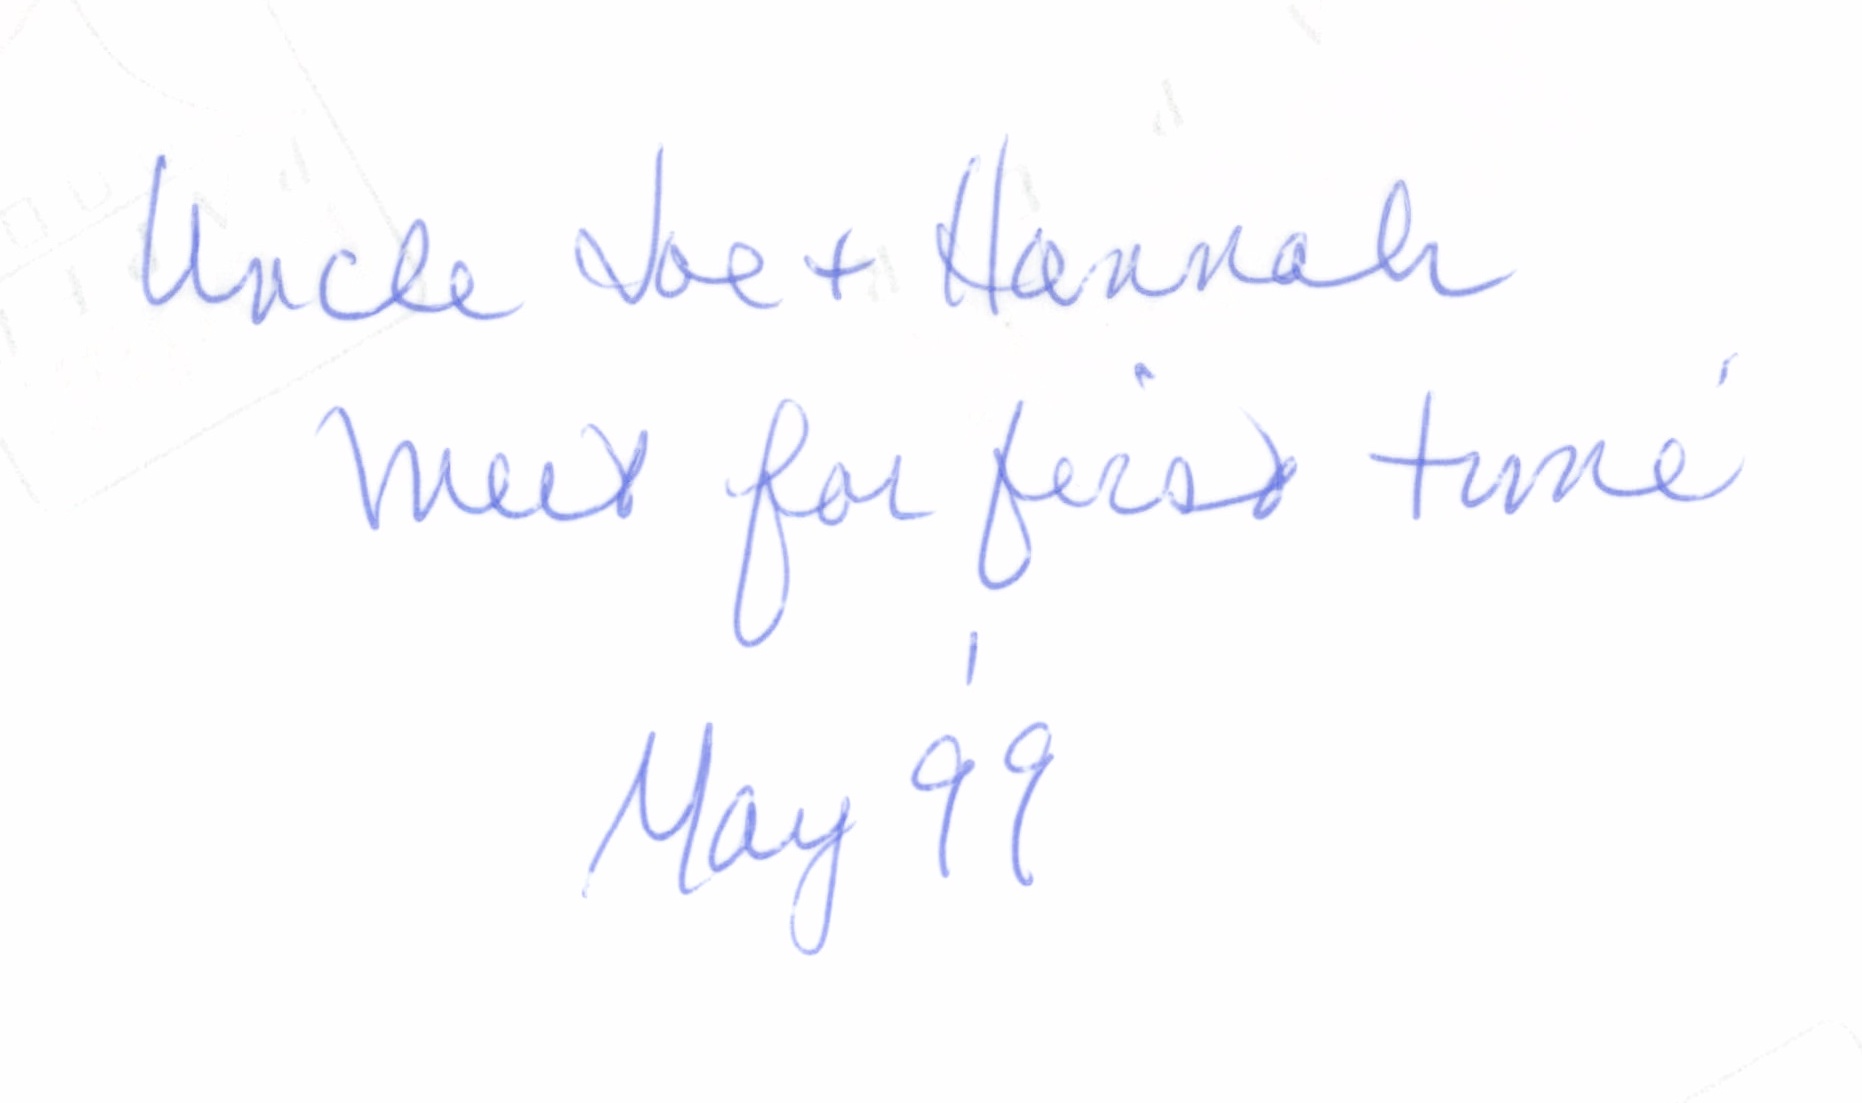 Uncle Joe + Hannah
Meet for first time
May '99